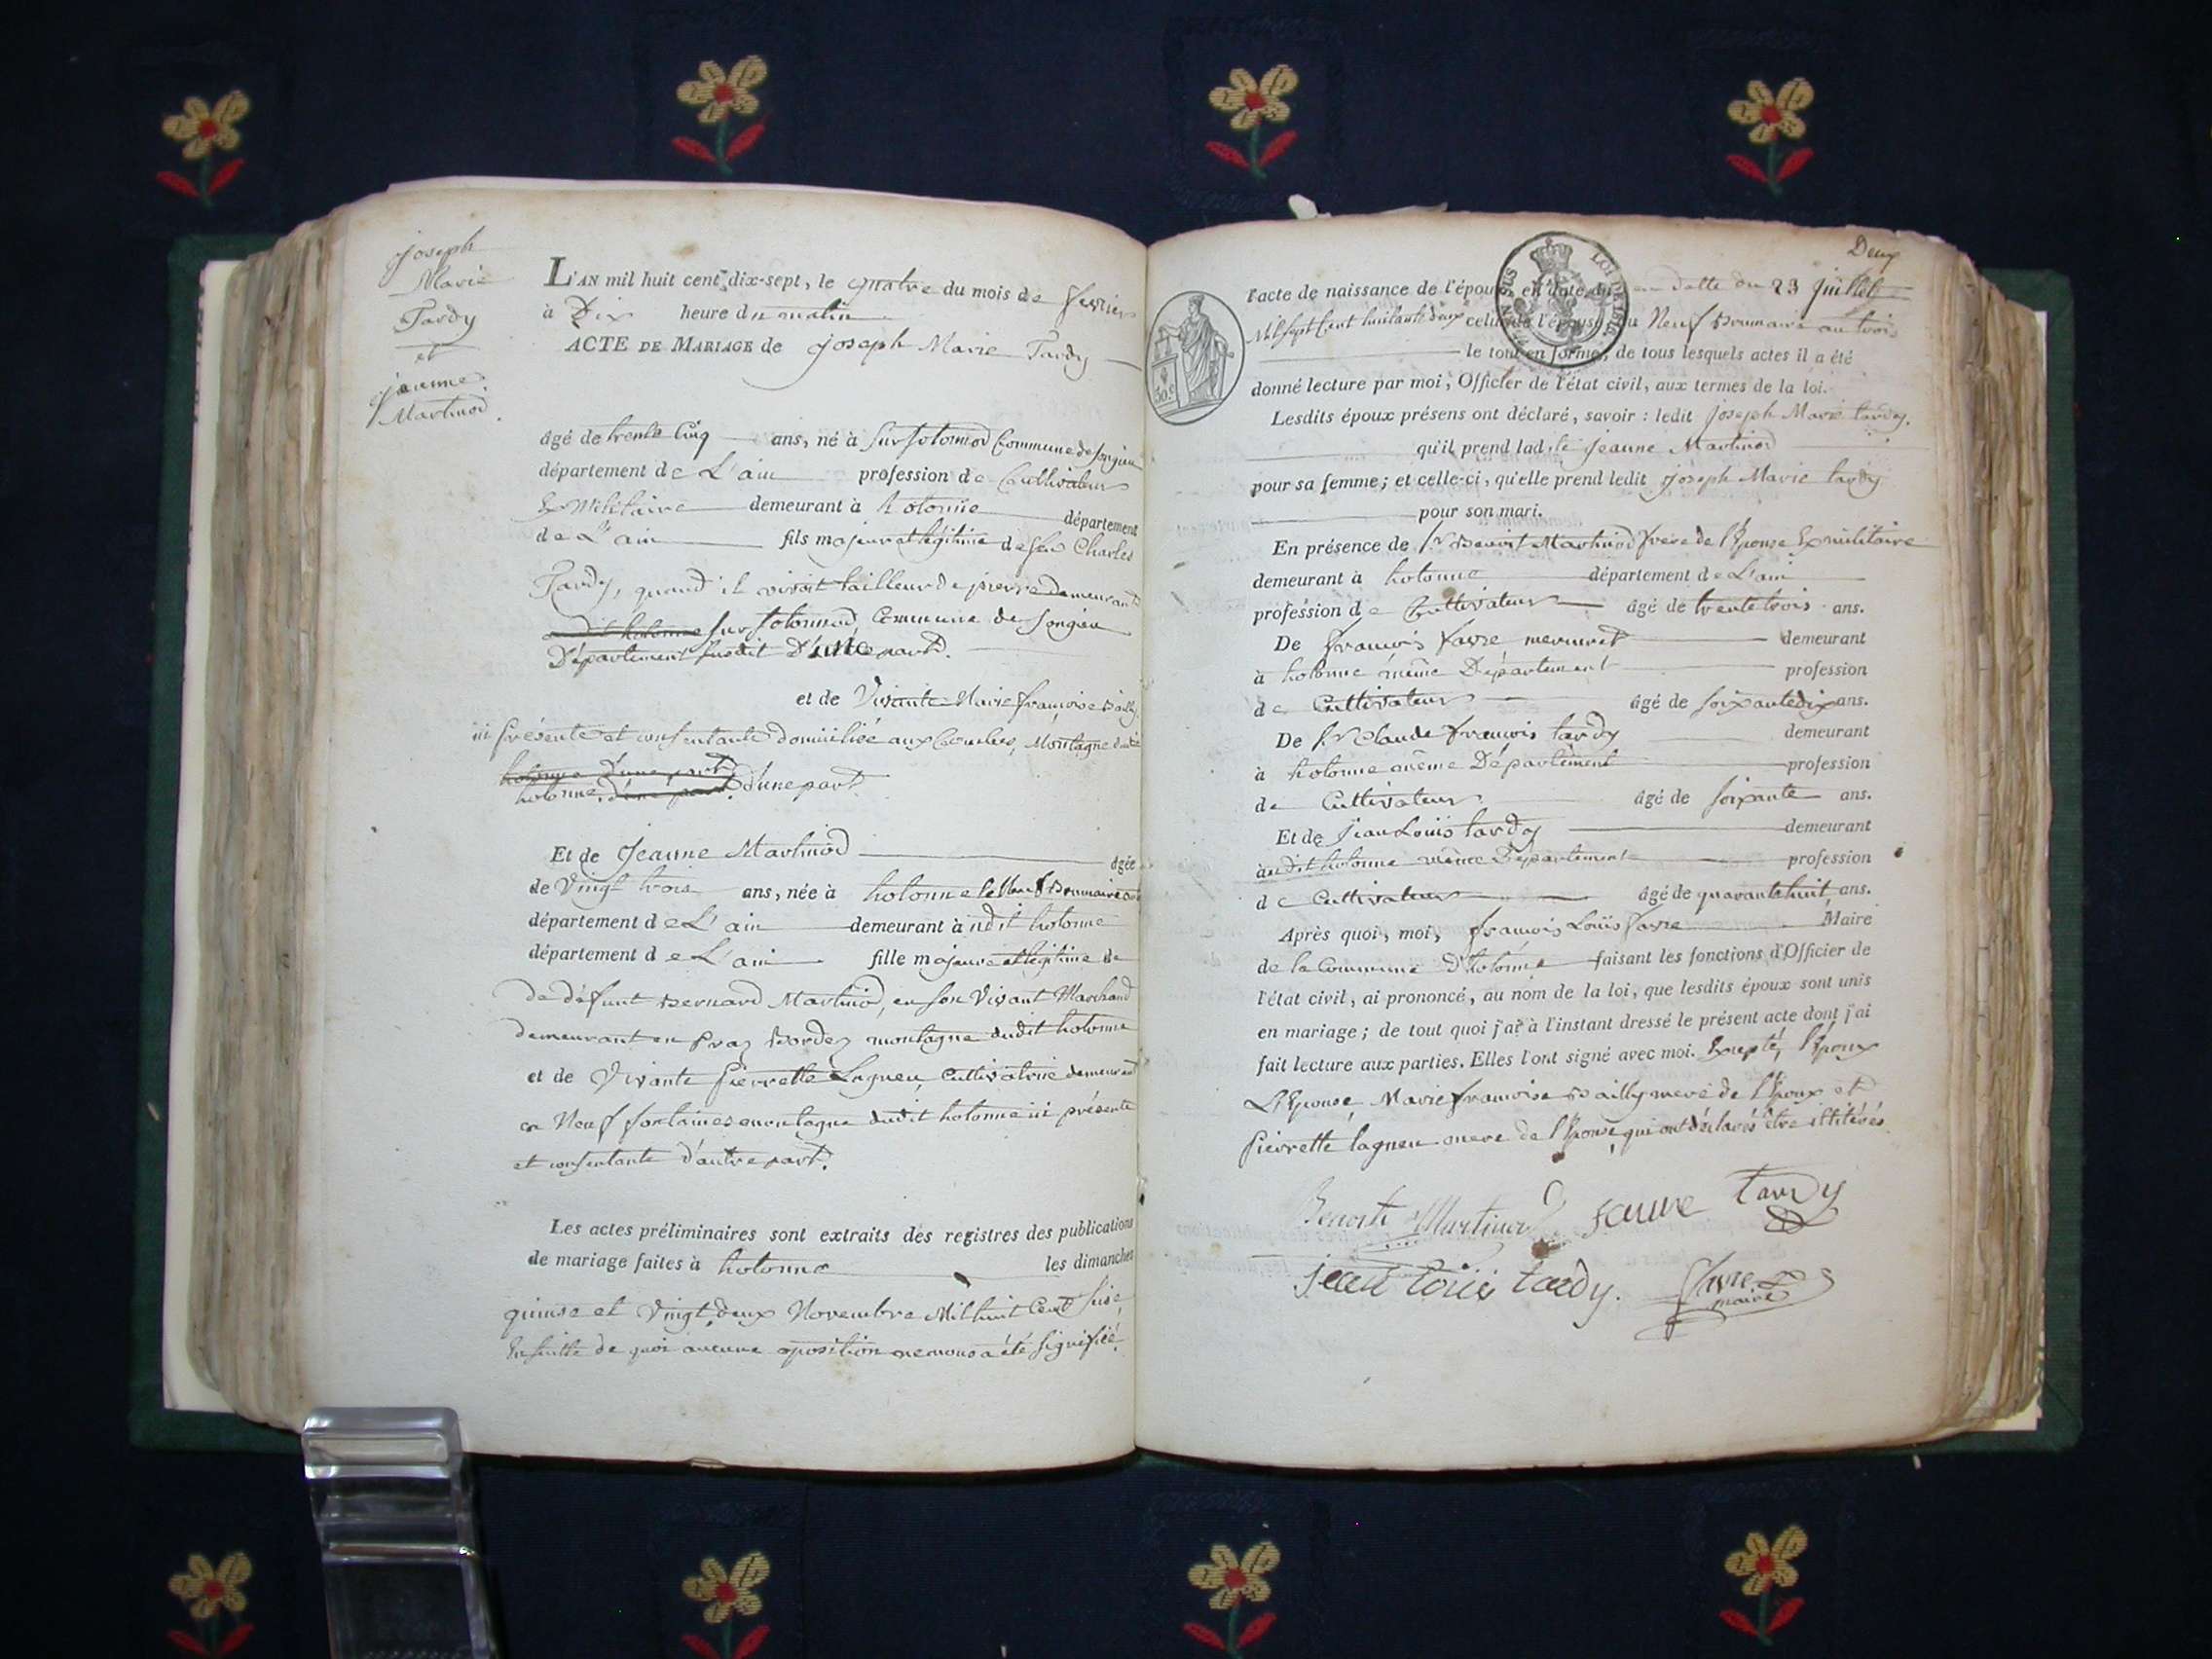 Joseph
Marie
Tardy
et
jeanne
Martinod.
L'AN mil huit cent dix-sept, le quatre du mois de fevrier
à Dix heure du matin
ACTE DE MARIAGE de Joseph Marie Tardy
âgé de trente Cinq ans, né à sur fotonod Commune de Songieu
département de L'ain profession de Cultivateur
Ex Militaire demeurant à hotonne département
de L'ain fils majeur et légitime de feu Charles
Tardy, quand il vivoit tailleur de pierre demeurant
audit hotonne sur fotonnod, Commune de Songieu
Département susdit D'une part.
et de Vivante Marie françoise Bailly
ici présente et consentante domiciliée aux Combes, Montagne dudit
hotonne d'une part
hotonne, d'une part. D'une part
Et de Jeanne Martinod âgée
de Vingt trois ans, née à hotonne le Neuf Brumaire
département de L'ain demeurant àudit hotonne
département de L'ain fille majeure et légitime de
de défunt Bernard Martinod, en son Vivant Marchand
demeurant en Praz Bordez montagne dudit hotonne
et de Vivante Pierrette Lagneu Cultivatrice demeurant
en Neuf fontaines montagne dudit hotonne ici présente
et consentante d'autre part.
Les actes préliminaires sont extraits des registres des publications
de mariage faites à hotonne les dimanches
quinse et Vingt,deux Novembre Mil huit Cent seise,
Ensuitte de quoi aucune oposition ne nous a été signifié.
Deux
LOI DE 1816
l'acte de naissance de l'époux en date du en datte du 23 juillet
Mil sept Cent huitante deux celui de l'épouse du Neuf Brumaire an trois
30 c
le tout en forme; de tous lesquels actes il a été
donné lecture par moi, Officier de l'état civil, aux termes de la loi.
Lesdits époux présens ont déclaré, savoir : ledit Joseph Marie tardy.
qu'il prend ladite Jeanne Martinod
pour sa femme; et celle-ci, qu'elle prend ledit Joseph Marie tardy
pour son mari.
En présence de Sr Benoit Martinod frere de l'Epouse Ex militaire
demeurant à hotonne département de L'ain
profession de Cultivateur âgé de trente trois ans.
De françois favre demeurant
à hotonne même Département profession
de Cultivateur âgé de soixante dix ans.
De Sr Claude françois tardy demeurant
à hotonne même Département profession
de Cultivateur âgé de soixante ans.
Et de Jean Louis tardy demeurant
àudit hotonne même Département profession
de Cultivateur âgé de quarante huit ans.
Après quoi, moi, françois Louis favre Maire
de la Commune D'hotonne faisant les fonctions d'Officier de
l'état civil, ai prononcé, au nom de la loi, que lesdits époux sont unis
en mariage; de tout quoi j'ai à l'instant dressé le présent acte dont j'ai
fait lecture aux parties. Elles l'ont signé avec moi. Excepté, l'Epoux
L'Epouse, Marie françoise Bailly mere de l'Epoux et
Pierrette lagneu mere de l'Epouse, qui ont déclarés être illitérés
Benoit Martinod favre tardy
jean loüis tardy. favre
maire